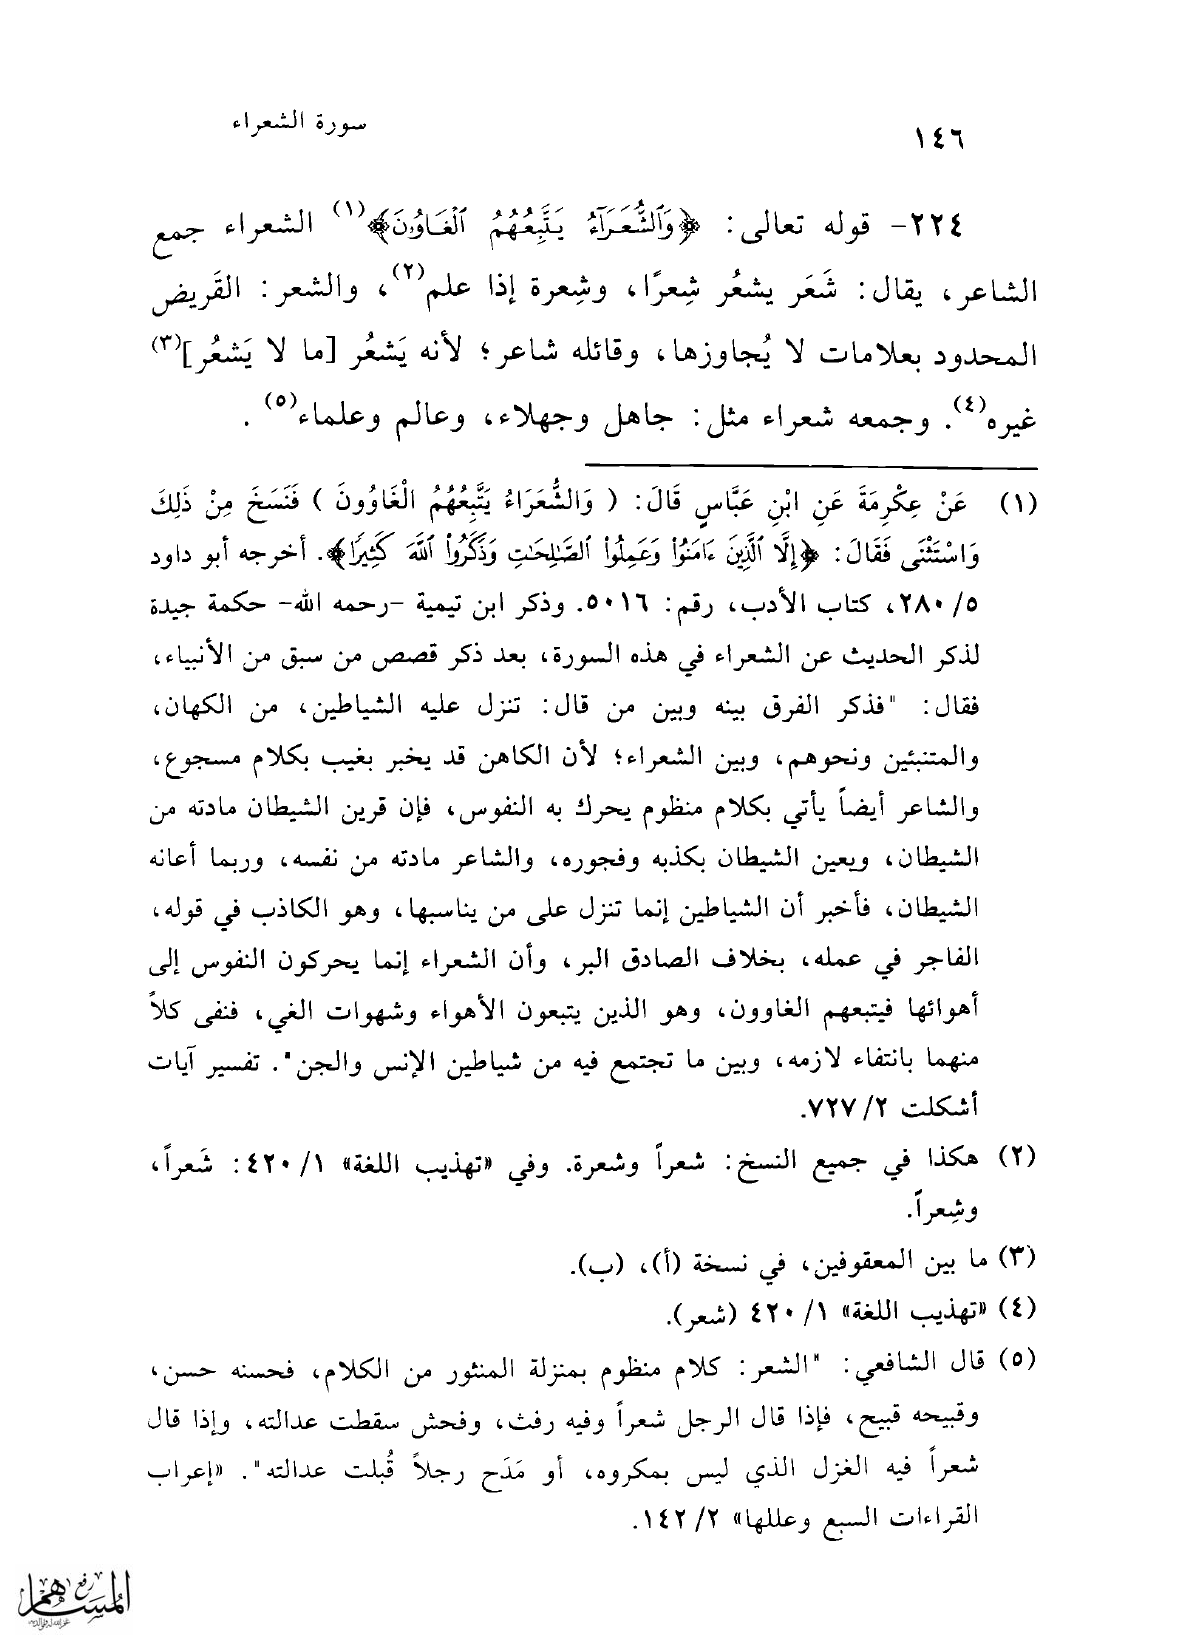 ١٤٦
سورة الشعراء
٢٢٤- قوله تعالى: ﴿وَٱلشُّعَرَآءُ يَتَّبِعُهُمُ ٱلْغَاوُۥنَ﴾(١) الشعراء جمع
الشاعر، يقال: شَعَر يشعُر شِعرًا، وشِعرة إذا علم(٢)، والشعر: القَريض
المحدود بعلامات لا يُجاوزها، وقائله شاعر؛ لأنه يَشعُر [ما لا يَشعُر](٣)
غيره(٤). وجمعه شعراء مثل: جاهل وجهلاء، وعالم وعلماء(٥).
(١) عَنْ عِكْرِمَةَ عَنِ ابْنِ عَبَّاسٍ قَالَ: ( وَالشُّعَرَاءُ يَتَّبِعُهُمُ الْغَاوُونَ ) فَنَسَخَ مِنْ ذَلِكَ
وَاسْتَثْنَى فَقَالَ: ﴿إِلَّا ٱلَّذِينَ ءَامَنُوا۟ وَعَمِلُوا۟ ٱلصَّـٰلِحَـٰتِ وَذَكَرُوا۟ ٱللَّهَ كَثِيرًا﴾. أخرجه أبو داود
٥/ ٢٨٠، كتاب الأدب، رقم: ٥٠١٦. وذكر ابن تيمية -رحمه الله- حكمة جيدة
لذكر الحديث عن الشعراء في هذه السورة، بعد ذكر قصص من سبق من الأنبياء،
فقال: "فذكر الفرق بينه وبين من قال: تنزل عليه الشياطين، من الكهان،
والمتنبئين ونحوهم، وبين الشعراء؛ لأن الكاهن قد يخبر بغيب بكلام مسجوع،
والشاعر أيضاً يأتي بكلام منظوم يحرك به النفوس، فإن قرين الشيطان مادته من
الشيطان، ويعين الشيطان بكذبه وفجوره، والشاعر مادته من نفسه، وربما أعانه
الشيطان، فأخبر أن الشياطين إنما تنزل على من يناسبها، وهو الكاذب في قوله،
الفاجر في عمله، بخلاف الصادق البر، وأن الشعراء إنما يحركون النفوس إلى
أهوائها فيتبعهم الغاوون، وهو الذين يتبعون الأهواء وشهوات الغي، فنفى كلاً
منهما بانتفاء لازمه، وبين ما تجتمع فيه من شياطين الإنس والجن". تفسير آيات
أشكلت ٢/ ٧٢٧.
(٢) هكذا في جميع النسخ: شعراً وشعرة. وفي «تهذيب اللغة» ١/ ٤٢٠: شَعراً،
وشِعراً.
(٣) ما بين المعقوفين، في نسخة (أ)، (ب).
(٤) «تهذيب اللغة» ١/ ٤٢٠ (شعر).
(٥) قال الشافعي: "الشعر: كلام منظوم بمنزلة المنثور من الكلام، فحسنه حسن،
وقبيحه قبيح، فإذا قال الرجل شعراً وفيه رفث، وفحش سقطت عدالته، وإذا قال
شعراً فيه الغزل الذي ليس بمكروه، أو مَدَح رجلاً قُبلت عدالته". «إعراب
القراءات السبع وعللها» ٢/ ١٤٢.
رفع
المساهم